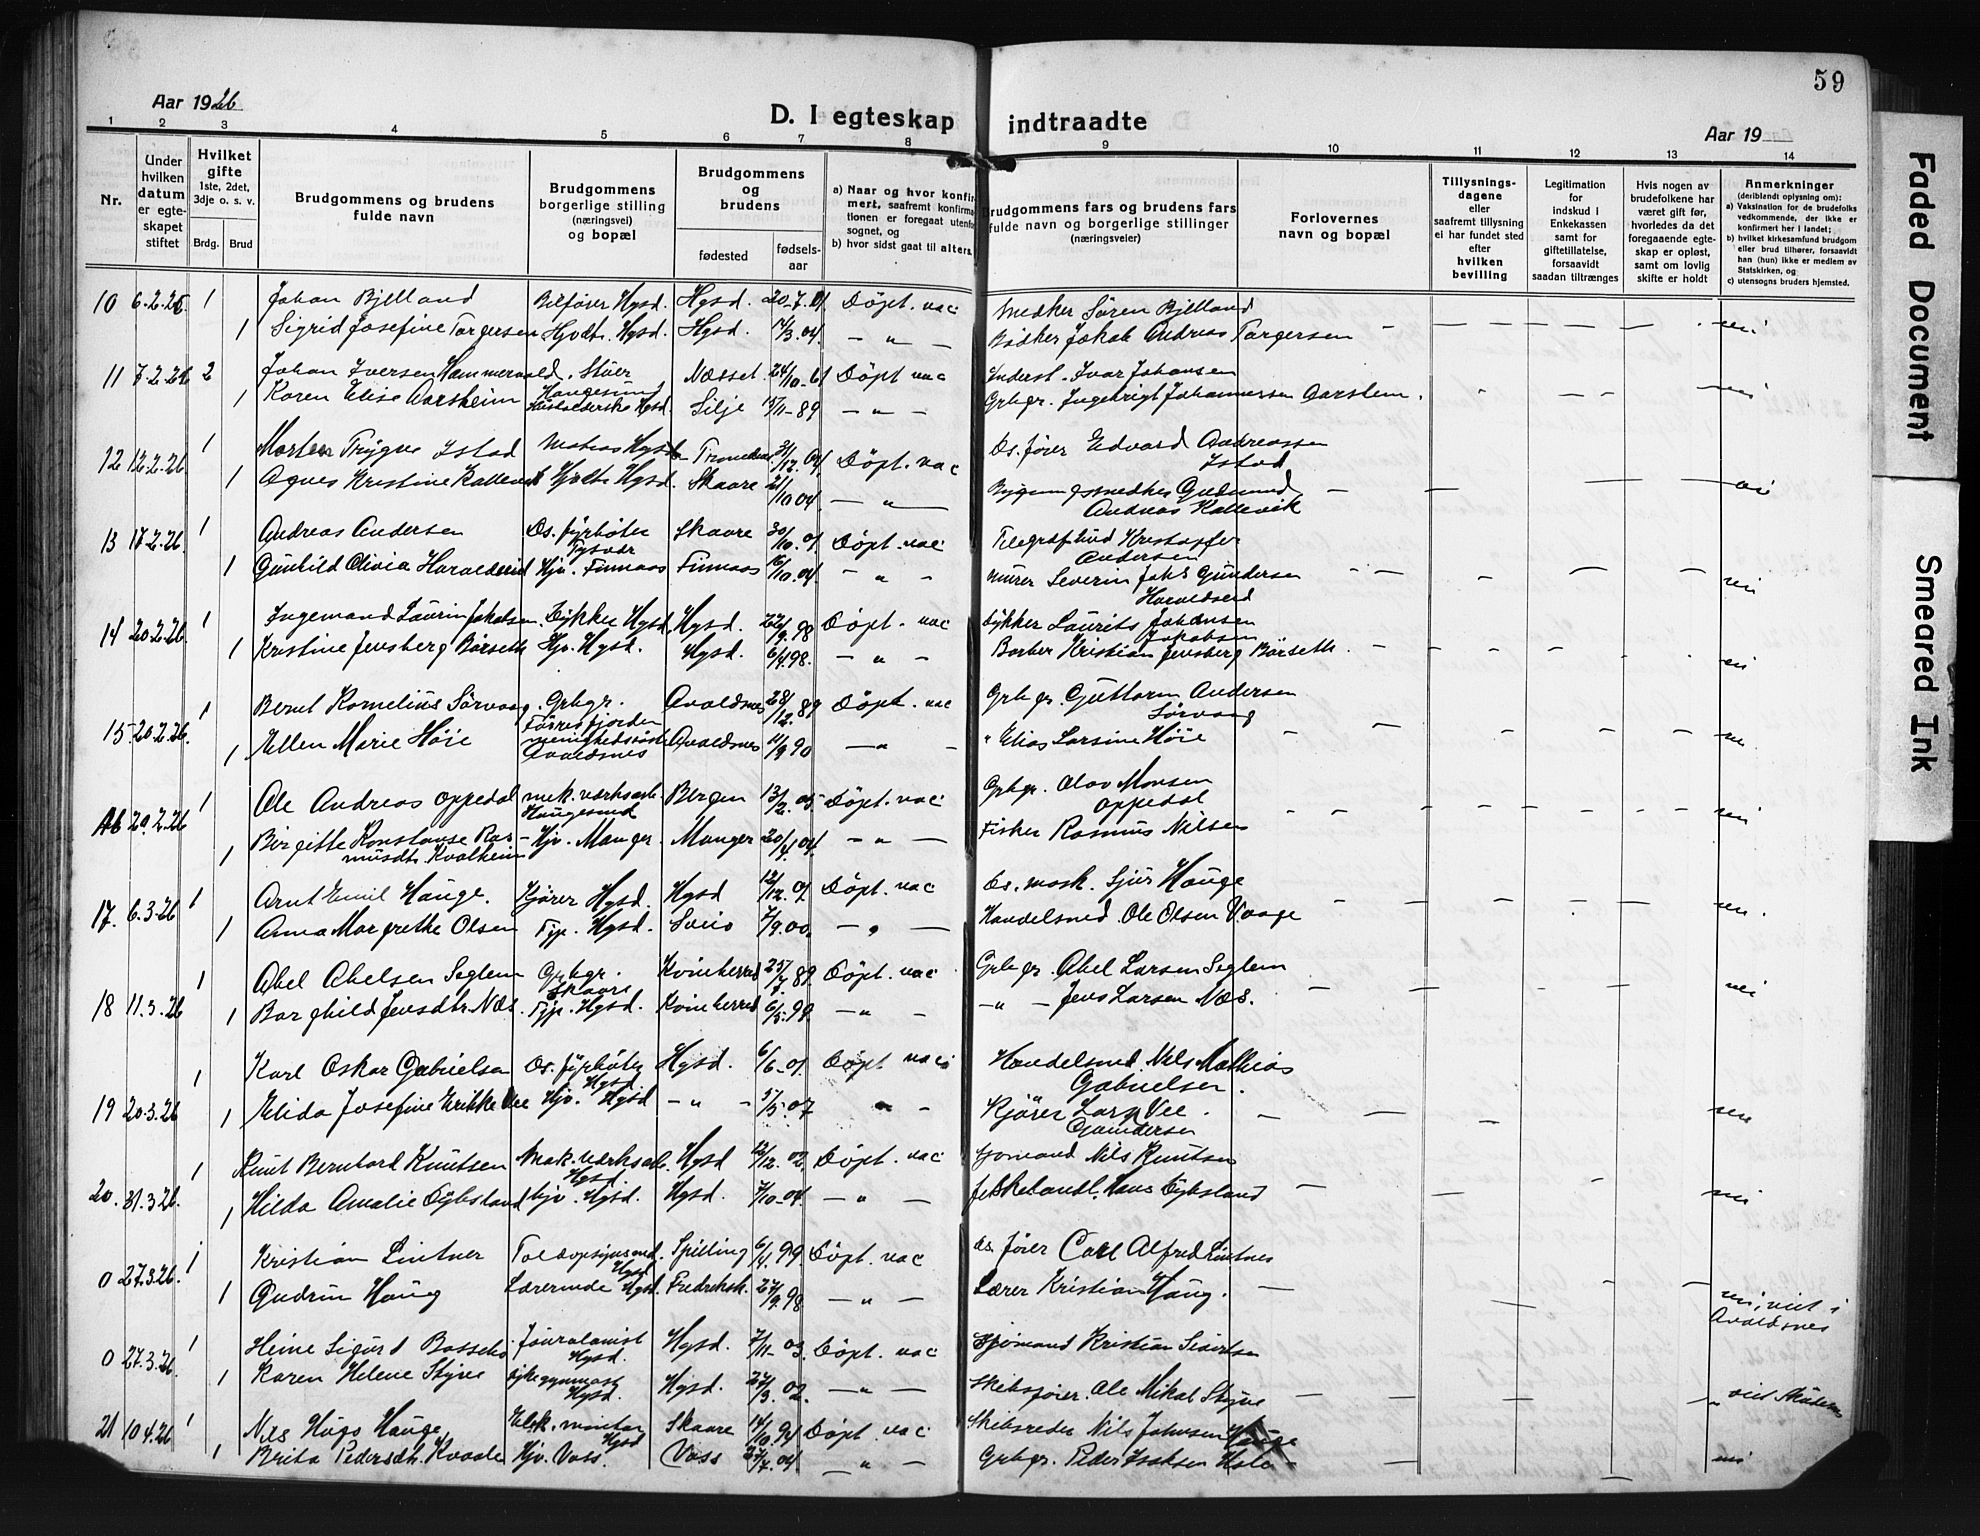 59
Aar 1926
D. I egteskap indtraadte
Aar 19
1 2 3 4 5 6 7 8 9 10 11 12 13 14
Nr.
Under hvilken datum er egteskapet stiftet
Hvilket gifte
1ste, 2det, 3dje o. s. v.
Brdg. Brud
Brudgommens og brudens fulde navn
Brudgommens borgerlige stilling (næringsvei) og bopæl
Brudgommens og brudens
fødested
fødselsaar
a) Naar og hvor konfirmert, saafremt konfirmationen er foregaat utenfor sognet, og
b) hvor sidst gaat til alters.
Brudgommens fars og brudens fars fulde navn og borgerlige stillinger (næringsveier)
Forlovernes navn og bopæl
Tillysningsdagene eller saafremt tillysning ei har fundet sted efter hvilken bevilling
Legitimation for indskud i Enkekassen samt for giftetillatelse, forsaavidt saadan tiltrænges
Hvis nogen av brudefolkene har været gift før, hvorledes da det foregaaende egteskap er opløst, samt om lovlig skifte er holdt
Anmerkninger
(deriblandt oplysning om):
a) Vaksination for de brudefolks vedkommende, der ikke er konfirmert her i landet;
b) hvilket kirkesamfund brudgom eller brud tilhører, forsaavidt han (hun) ikke er medlem av Statskirken, og
c) utensogns bruders hjemsted.
10 6.2.26. 1 Johan Bjelland Bilfører Hgsd. Hgsd. 20-7.01. Döpt. vac Smedker Sören Bjelland
1 Sigrid Josefine Torgersen Hjvdtr. Hgsd. Hgsd. 14/3.04. — " — Bödker Jakob Andreas Torgersen nei
11 7.2.26 2 Johan Iversen Hammervold. Stuer Næsset. 24/10-61 Döpt vac Inderst. Ivar Johansen
Haugesund
1 Karen Elise Aarsheim Husholderske Hgsd. Silje 15/11-89 — " — Grbgr. Ingebrigt Johannessen Aarsheim. nei
12 12.2.26 1 Morten Trygve Istad Matros Hgsd. 31/12.04. Döpt. vac Ds. fører Edvard Andreassen Istad
1 Agnes Kristine Kallevik Hjvdtr Hgsd. Skaare 21/10 04. — " — Bygningssnedker Gudmund Andreas Kallevik nei
13 17.2.26. 1 Andreas Andersen Ds. fyrböter Tysvær Skaare 30/10.01. Döpt. vac Telegrafbud Kristoffer Andersen
1 Gunhild Olivia Haraldseid Hjv. Finnaas Finnaas 16/10.04. — " — Murer Severin Johs Gundersen Haraldseid nei
14 20.2.26. 1 Ingemand Laurin Jakobsen. Dykker Hgsd. Hgsd. 22/9.98 Döpt. vac Dykker Laurits Johansen Jakobsen
1 Kristine Jensberg Børseth Hjv. Hgsd. Hgsd. 6/4.98. — " — Barber Kristian Jensberg Børseth. nei
15. 20.2.26. 1 Bernt Kornelius Sörvaag. Grbgr. Förresfjorden Avaldsnes 28/12.89 Döpt. vac Grbgr. Guttorm Andersen Sörvaag
1 Ellen Marie Höie menighedssöster Avaldsnes Avaldsnes 11/9 90 — " — " Elias Larsine Höie nei
16 20.2.26 1 Ole Andreas Oppedal mek. værksarb. Haugesund Bergen 13/2.05 Döpt. vac Grbgr. Olav Monsen Oppedal
1 Birgitte Konstanse Rasmusdtr. Kvalheim Hjv. Manger. Manger 20/4.04. — " — Fisker Rasmus Nilsen nei
17. 6.3.26 1 Arnt Emil Hauge. Kjörer Hgsd. Hgsd 12/12.01. Döpt. vac Ds. mask. Sjur Hauge
1 Anna Margrethe Olsen Tjp. Hgsd. Sveio 7/9.00. — " — Handelsmd. Ole Olsen Vaage nei.
18 11.3.26 1 Abel Abelsen Seglem Grbgr. Skaare Kvinherred 25/7.89 Döpt. vac Grbgr. Abel Larsen Seglem
1 Borghild Jensdtr. Næs. Tjp. Hgsd. Kvinherred 6/5.99. — " — — " — Jens Larsen Næs. nei
19 20.3.26 1 Karl Oskar Gabrielsen Ds. fyrböter Hgsd. Hgsd. 6/6-01. Döpt vac Handelsmd. Nils Mathias Gabrielsen.
1 Elida Josefine Erikke Vee Hjv. Hgsd — " — 5/5.07 " — Kjörer Lars Vee. Gundersen nei
20. 31.3.26. 1 Knut Bernhard Knutsen Mek. værksarb. Hgsd. Hgsd 12/12.02. Döpt. vac Sjömand Nils Knutsen
1 Hilda Amalie Dybsland Hjv. Hgsd. Hgsd. 7/10-04. — " — fiskehandl. Hans Dybsland nei
0 27.3.26. 1 Kristian Lintner Toldopsynsmd. Hgsd Spilling 6/4.99. Döpt. vac Ds. fører Carl Alfred Lintner
1 Gudrun Haug Lærerinde Hgsd. Fredrikst. 27/9.98 — " — Lærer Kristian Haug. nei, viet i Avaldsnes
0 27.3.26. 1 Heine Sigurd Bassebo Journalist Hgsd. Hgsd. 7/11-03. Döpt. vac Sjömand Kristian Sivertsen
1 Karen Helene Styve Sykegymnast Hgsd. Hgsd. 27/3.02. — " — Skibsfører. Ole Mikal Styve " viet Skudenes
21 10.4.26 1 Nils Hugo Hauge Elek. montør Hgsd Skaare 14/10.94 Döpt. vac Skibsreder Nils Johnsen Hauge
1 Brita Pedersdtr. Kvaale Hjv. Voss. Voss 27/7.04 — " — Grbgr. Peder Isaksen nei
Faded Document
Smeared Ink